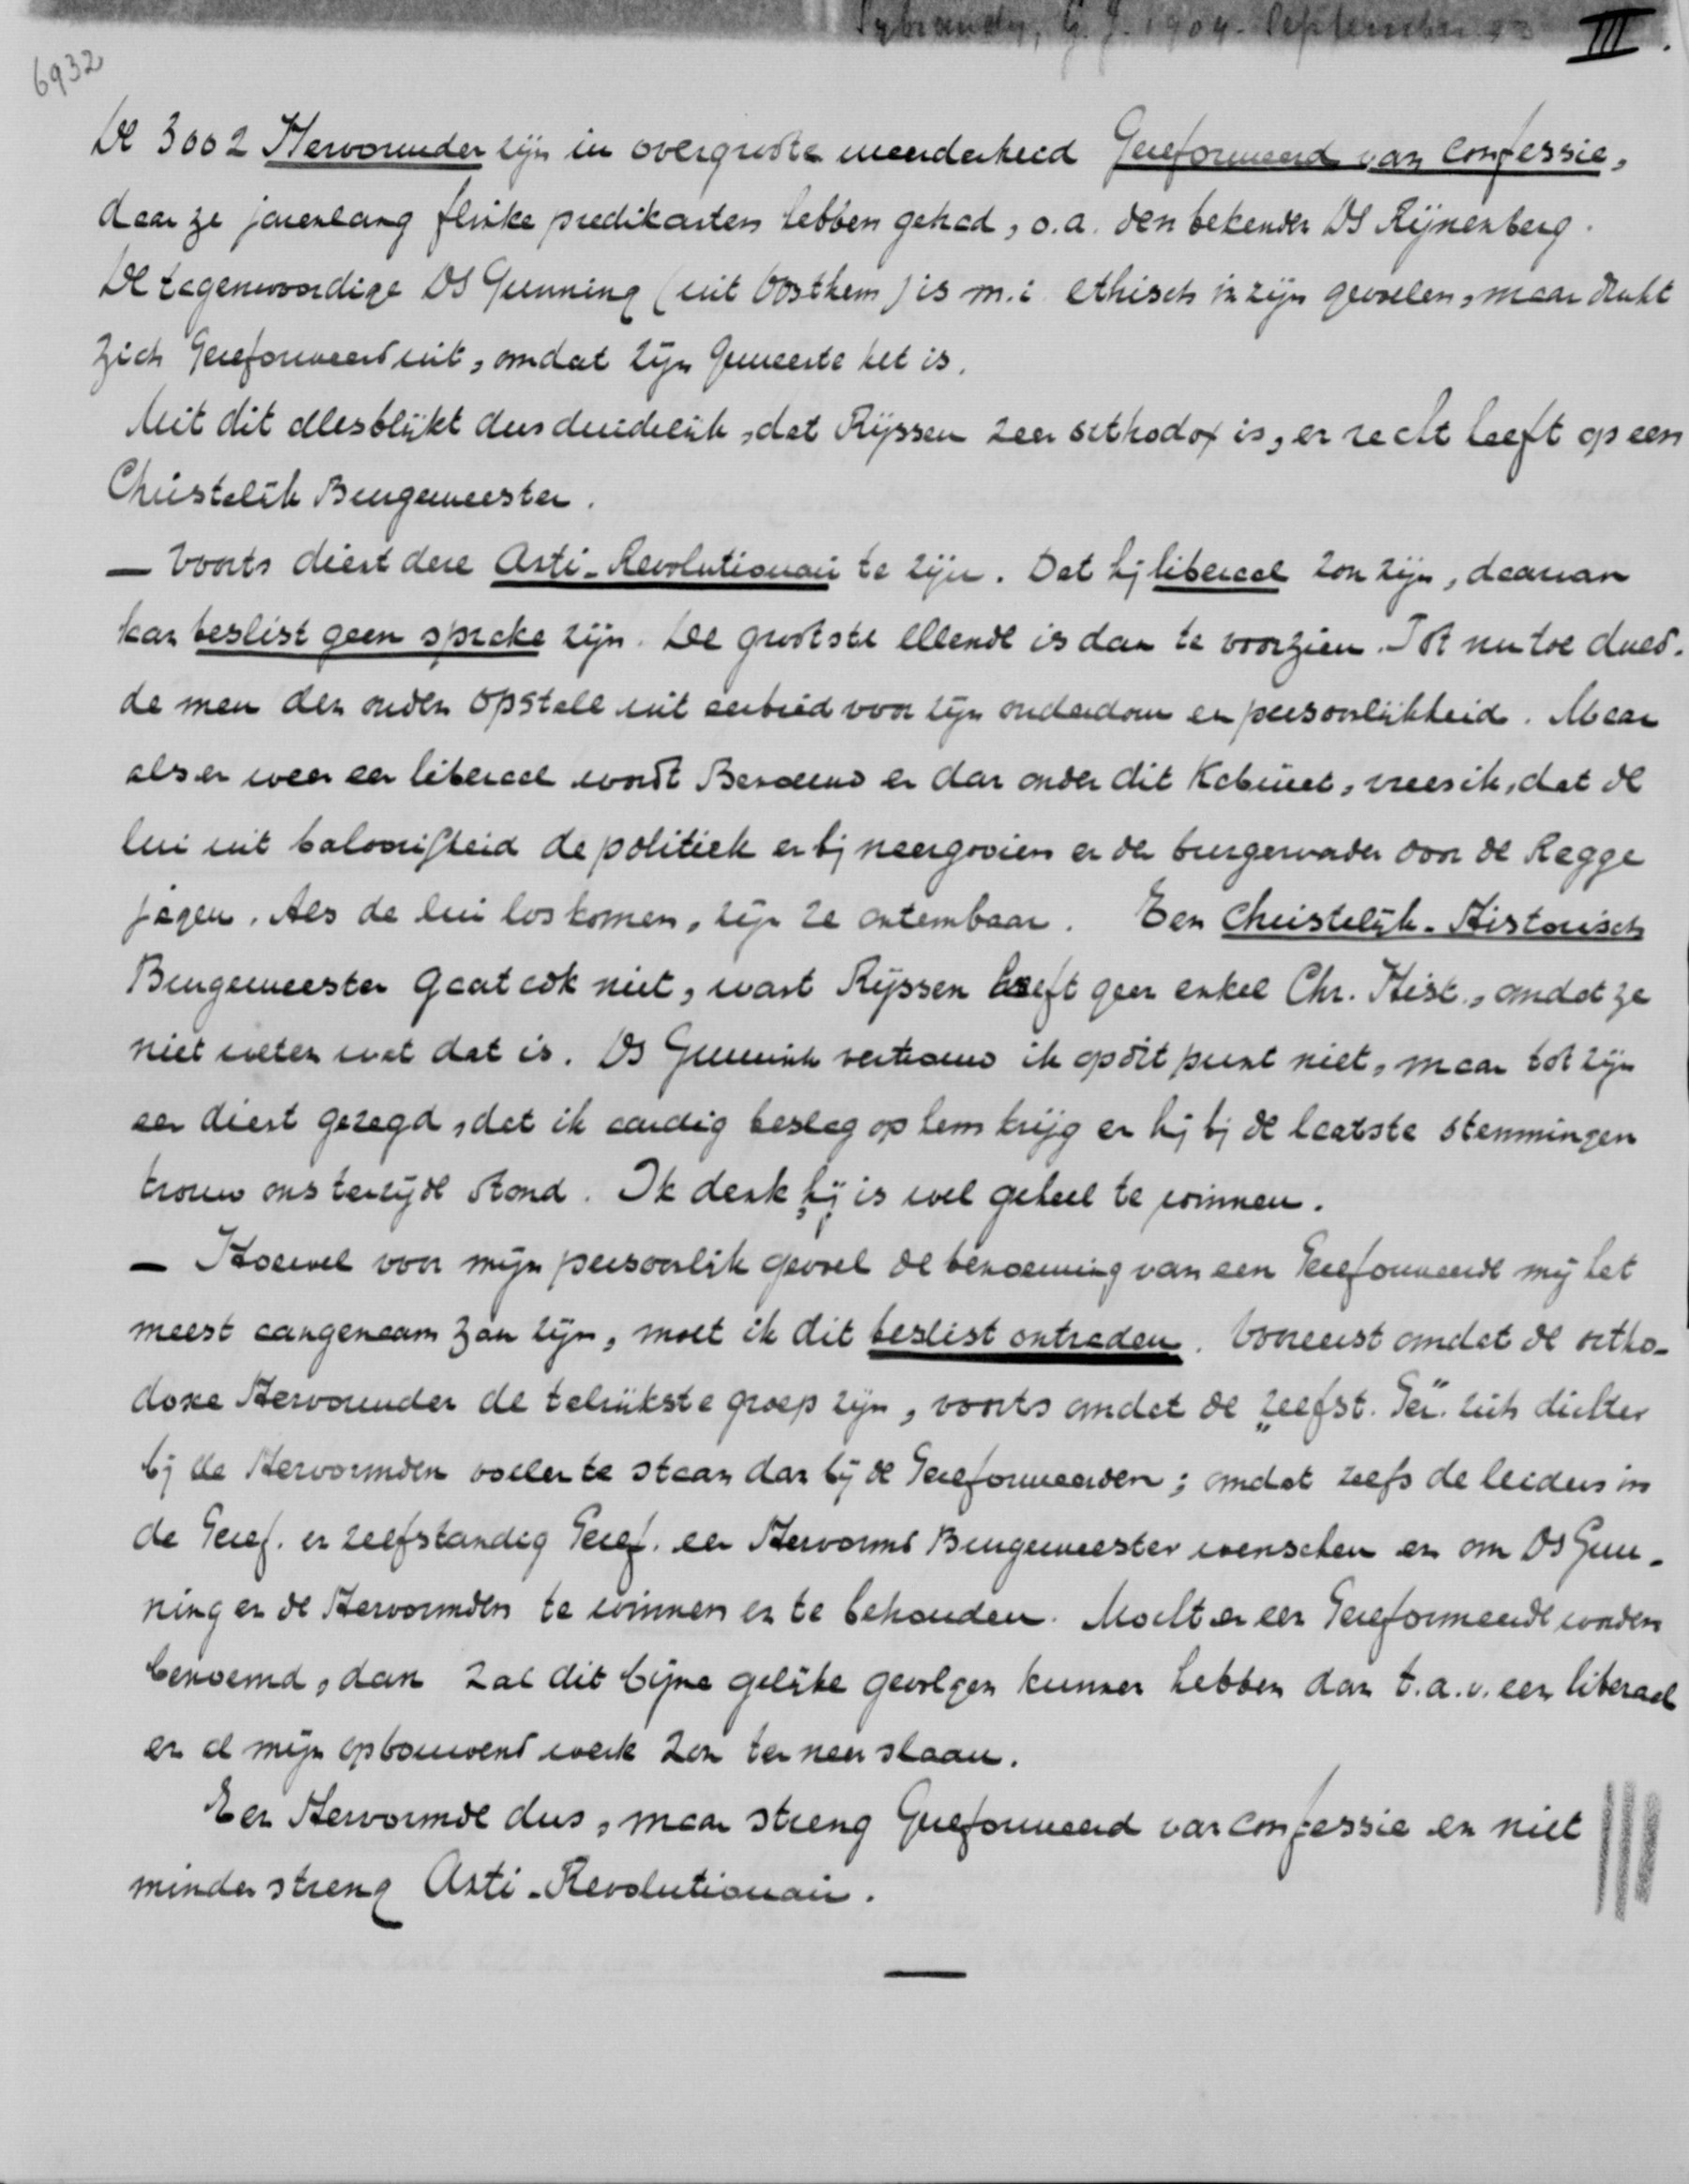 Sybrandy, G. J. 1904. September
III.
6932
De 3002 Hervormden zijn in overgroote meerderheid Gereformeerd van confessie,
daar ze jarenlang flinke predikanten hebben gehad, o.a. den bekenden Ds Rijnenberg.
De tegenwoordige Ds Gunning (uit Oosthem) is m.i. ethisch in zijn gevoelen, maar drukt
zich Gereformeerd uit, omdat zijn Gemeente het is.
Uit dit alles blijkt dus duidelijk, dat Rijssen zeer orthodox is, en recht heeft op een
Christelijk Burgemeester.
— Voorts dient deze Anti-Revolutionair te zijn. Dat hij liberaal zou zijn, daarvan
kan beslist geen sprake zijn. De grootste ellende is dan te voorzien. Tot nu toe duld-
de men den ouden Opstall uit eerbied voor zijn ouderdom en persoonlijkheid. Maar
als er weer een liberaal wordt Benoemd en dan onder dit Kabinet, vrees ik, dat de
lui uit baloorigheid de politiek er bij neergooien en den burgervader over de Regge
jagen. Als de lui los komen, zijn ze ontembaar. Een Christelijk-Historisch
Burgemeester gaat ook niet, want Rijssen heeft geen enkel Chr. Hist., omdat ze
niet weten wat dat is. Ds Gunnink vertrouw ik op dit punt niet, maar tot zijn
eer dient gezegd, dat ik aardig beslag op hem krijg en hij bij de laatste stemmingen
trouw ons terzijde stond. Ik denk hij is wel geheel te winnen.
— Hoewel voor mijn persoonlijk gevoel de benoeming van een Gereformeerde mij het
meest aangenaam zou zijn, moet ik dit beslist ontraden. Vooreerst omdat de ortho-
doxe Hervormden de talrijkste groep zijn, voorts omdat de „zelfst. Ger." zich dichter
bij de Hervormden voelen te staan dan bij de Gereformeerden; omdat zelfs de leiders in
de Geref. en zelfstandig Geref. een Hervormd Burgemeester wenschen en om Ds Gun-
ning en de Hervormden te winnen en te behouden. Mocht er een Gereformeerde worden
benoemd, dan zal dit bijna gelijke gevolgen kunnen hebben dan t.a.v. een liberaal
en al mijn opbouwend werk zou ter neer slaan.
Een Hervormde dus, maar streng Gereformeerd van confessie en niet
minder streng Anti-Revolutionair.